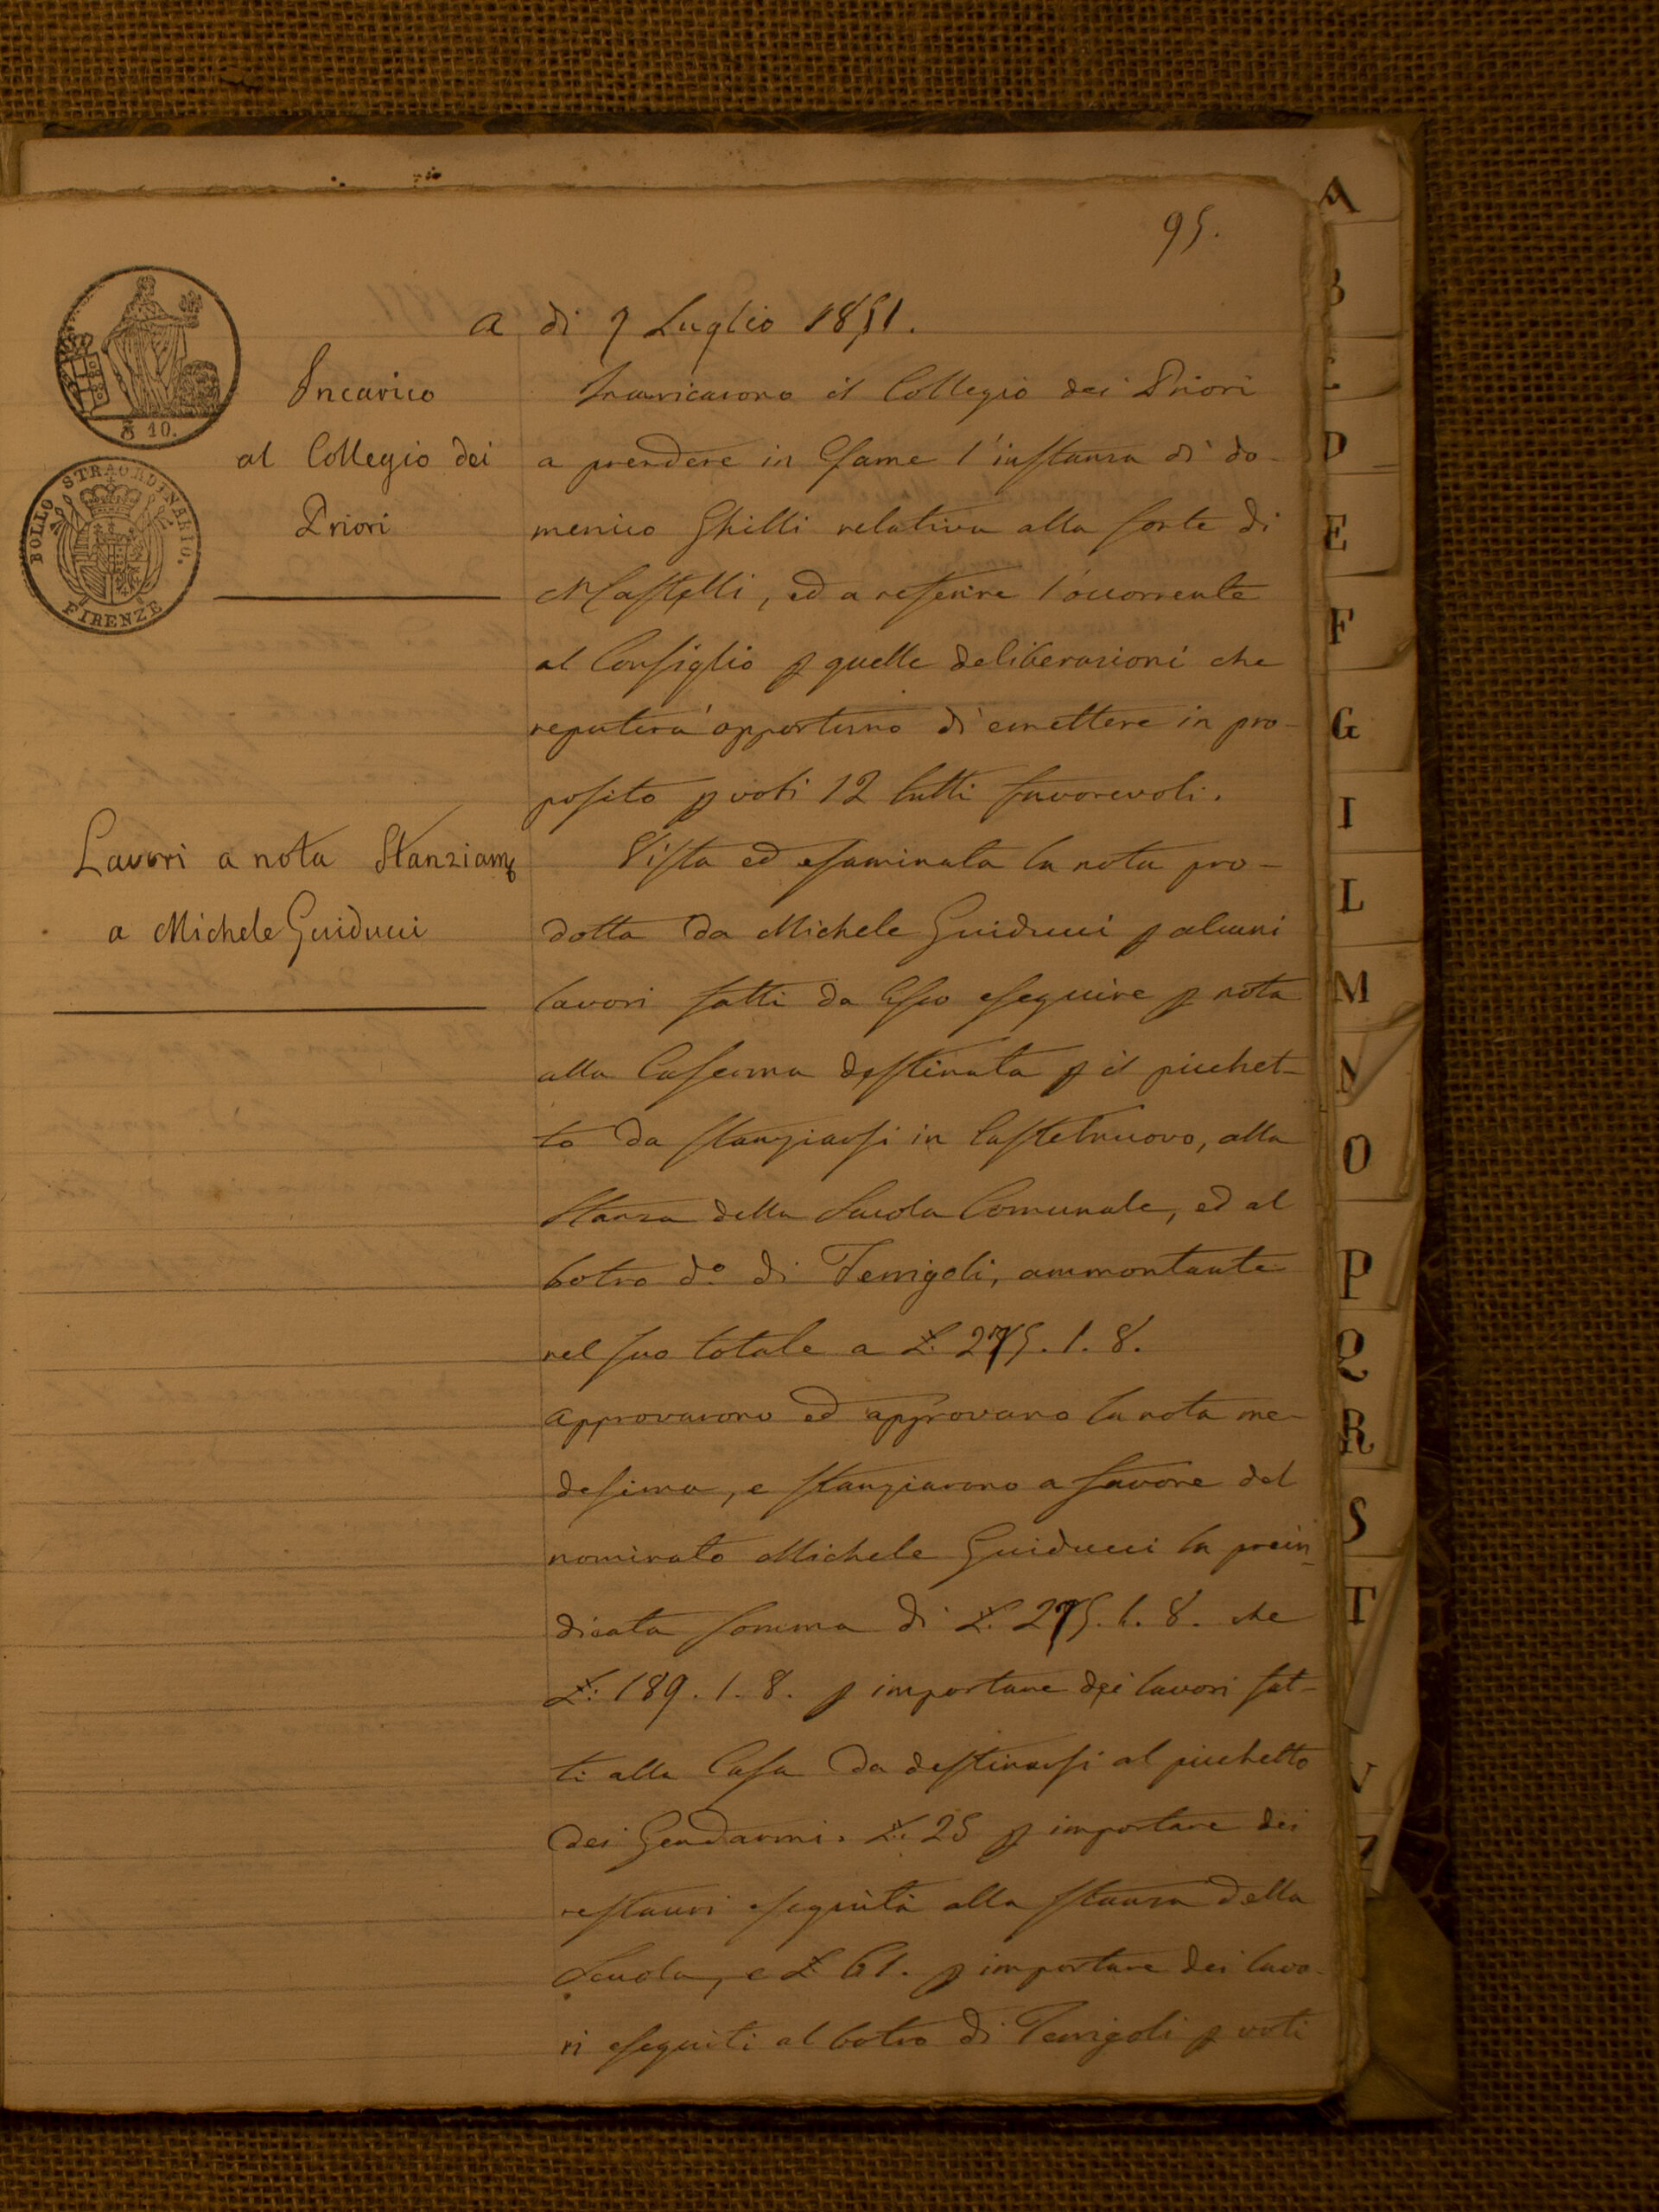 95.
a di 7 Luglio 1851.
Incarico
al Collegio dei
Priori
Incaricarono il Collegio dei Priori
a prendere in Esame l'instanza di do-
menico Ghilli relativa alla fonte di
ed a referire l'occorrente
al Consiglio p quelle deliberazioni che
reputerà opportuno di emettere in pro-
posito p voti 12 tutti favorevoli.
Lavori a nota Stanziam
a Michele Guiducci
Vista ed esaminata la nota pro-
dotta da Michele Guiducci p alcuni
lavori fatti da Esso eseguire p nota
alla Caserma destinata p il picchet-
to da stanziarsi in Castelnuovo, alla
Stanza della Scuola Comunale, ed al
botro d.o di ammontante
nel suo totale a £. 275.1.8.
approvarono ed approvano la nota me-
desima, e stanziarono a favore del
nominato Michele Guiducci la prein-
dicata somma di £. 275.1.8. che
£. 189.1.8. p importare dei lavori fat-
ti alla Casa da destinarsi al picchetto
dei Gendarmi. £. 25 p importare dei
restauri eseguiti alla stanza della
Scuola, e £ 61. p importare dei lavo-
ri eseguiti al botro di p voti
10.
BOLLO STRAORDINARIO.
FIRENZE
A
B
C
D
E
F
G
I
L
M
N
O
P
Q
R
S
T
V
Z